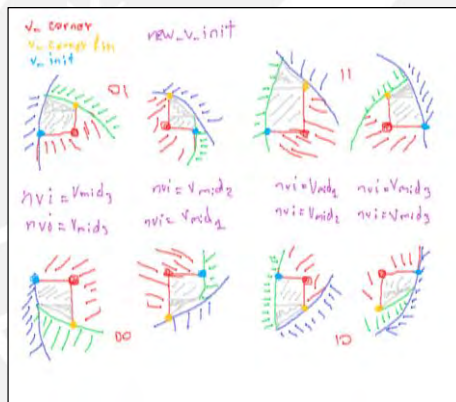 v_corner
v_corner lim
v_init
new_v_init
01
11
nvi = Vmid3
nvi = Vmid3
nvi = Vmid2
nvi = Vmid1
nvi = Vmid1
nvi = Vmid2
nvi = Vmid3
nvi = Vmid3
00
10